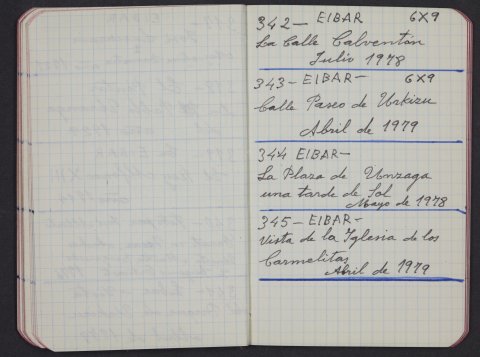 342 - EIBAR 6X9
La Calle Calventón
Julio 1978
343 - EIBAR - 6X9
Calle Paseo de Urkizu
Abril de 1979
344 EIBAR -
La Plaza de Unzaga
una tarde de Sol
Mayo de 1978
345 - EIBAR -
Vista de la Iglesia de los
Carmelitas
Abril de 1979